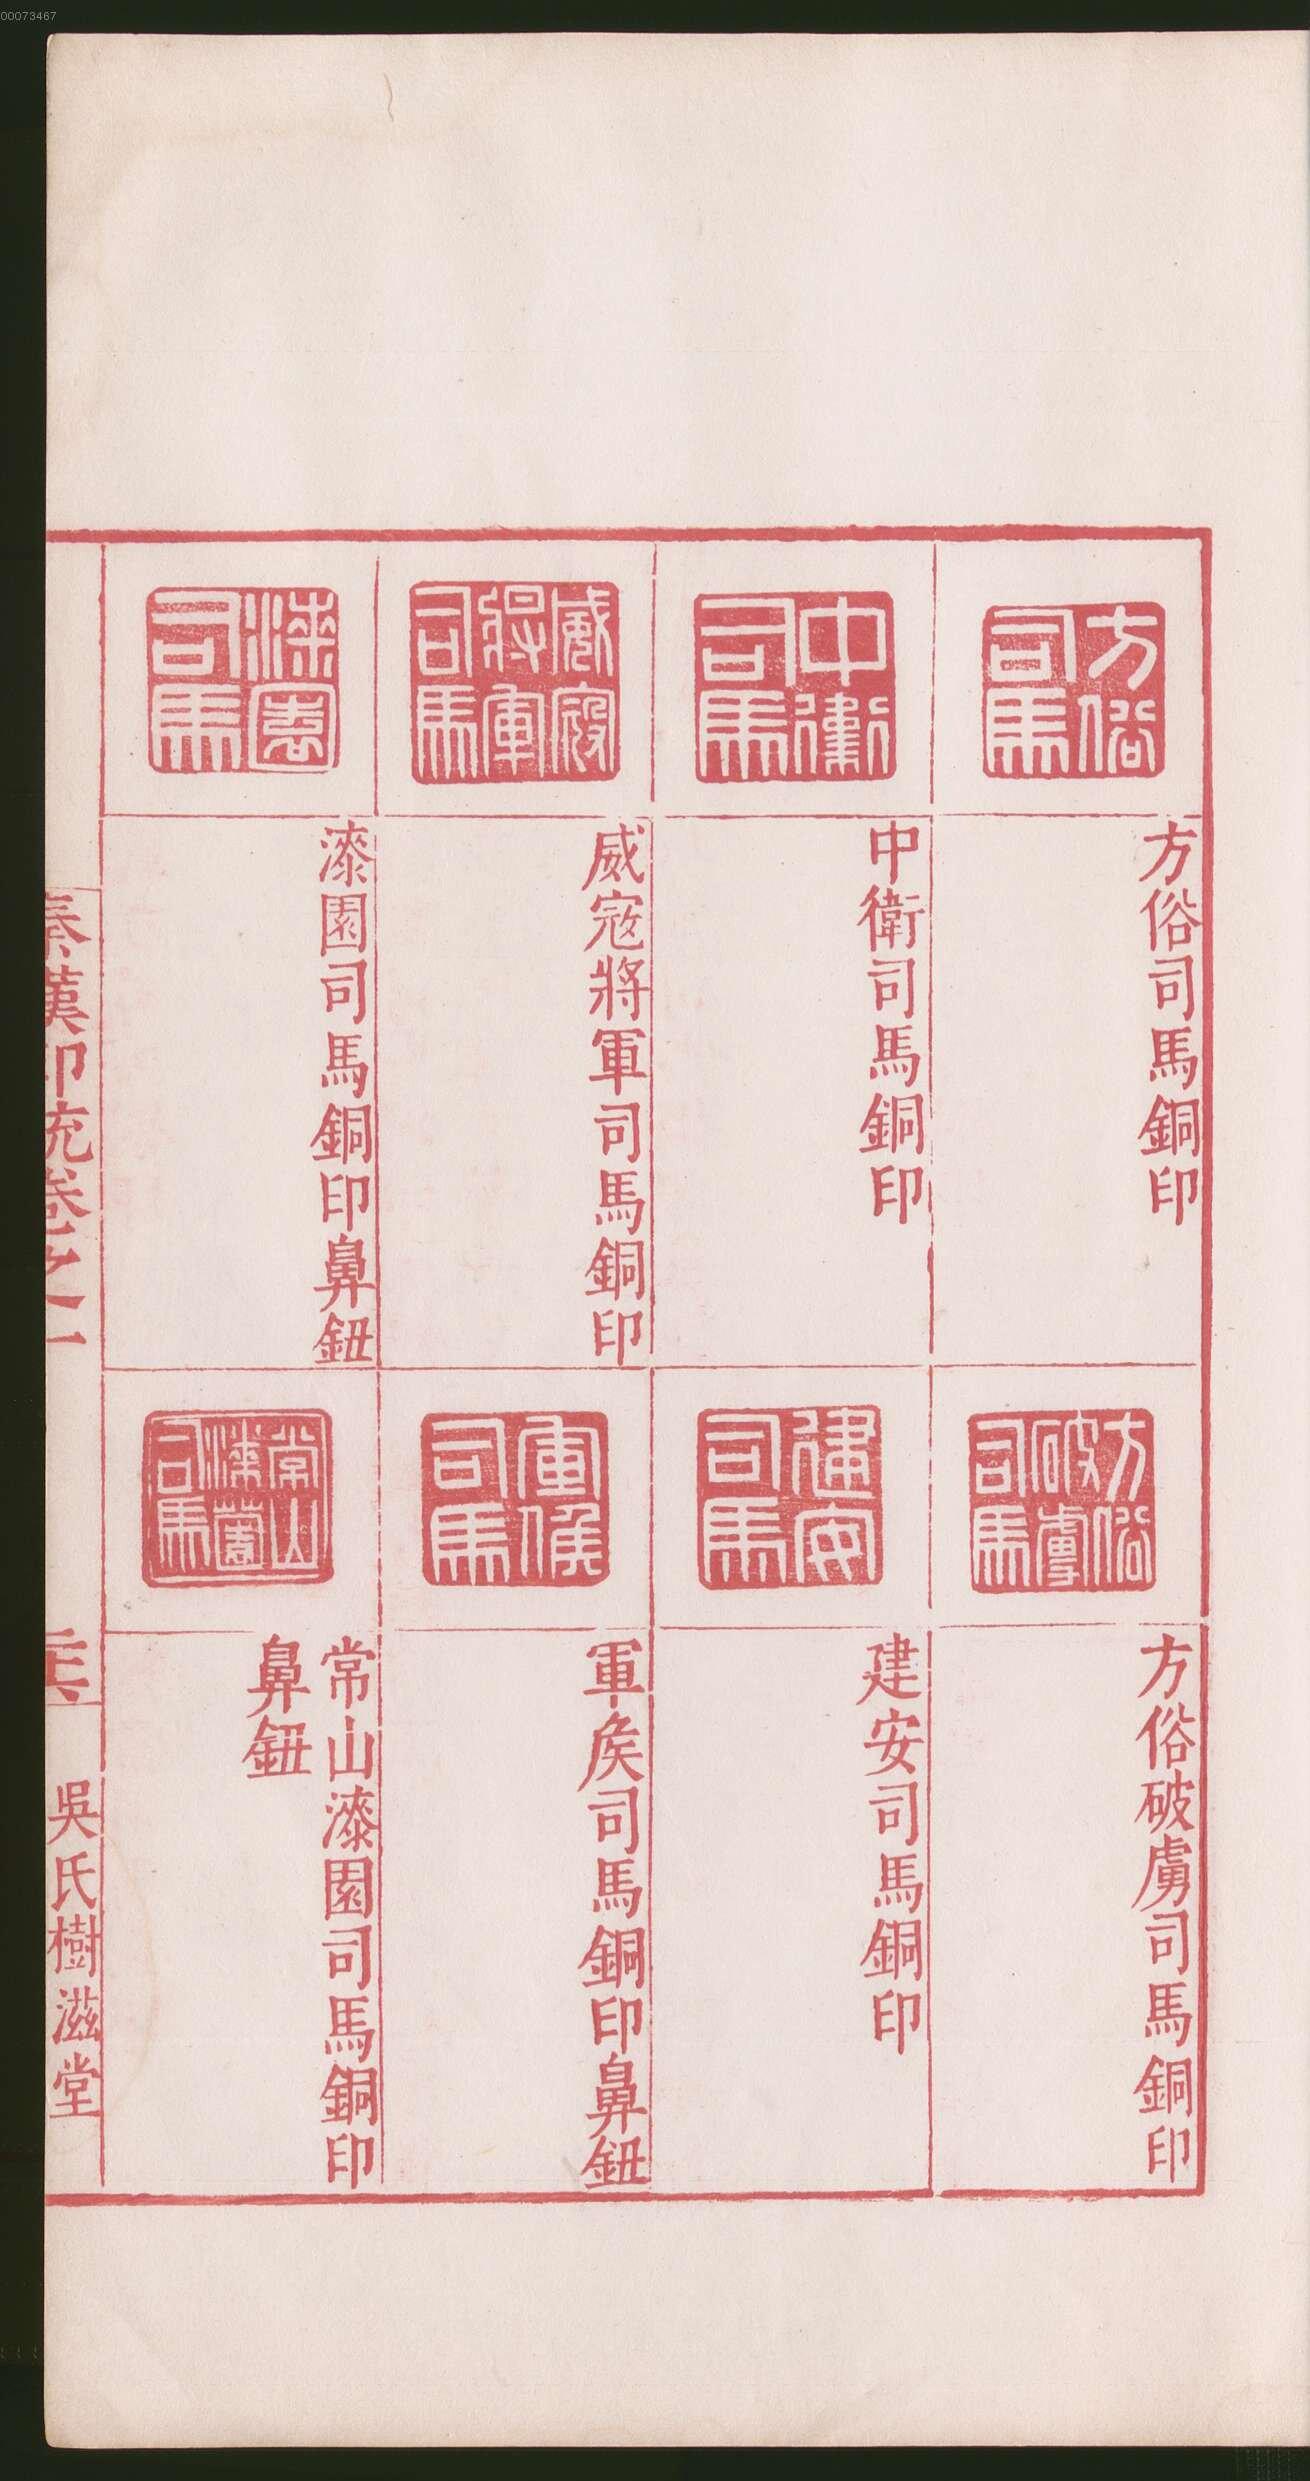 00073467
方俗司馬
方俗司馬銅印
中衛司馬
中衛司馬銅印
威寇將軍司馬
威寇將軍司馬銅印
漆園司馬
漆園司馬銅印鼻鈕
方俗破虜司馬
方俗破虜司馬銅印
建安司馬
建安司馬銅印
軍候司馬
軍矦司馬銅印鼻鈕
常山漆園司馬
常山漆園司馬銅印
鼻鈕
秦漢印統卷之一
吳氏樹滋堂